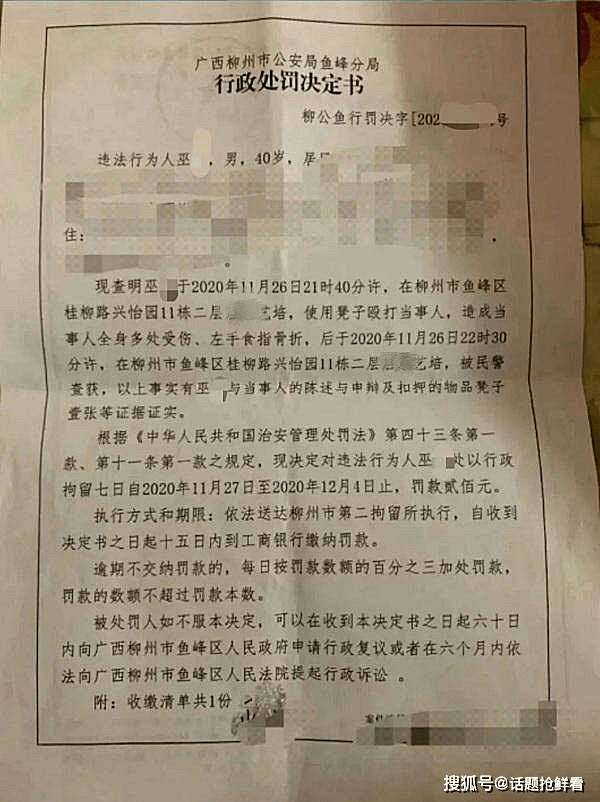 广西柳州市公安局鱼峰分局
行政处罚决定书
柳公鱼行罚决字[202 号
违法行为人巫 ，男，40岁，居
住：
现查明巫 于2020年11月26日21时40分许，在柳州市鱼峰区
桂柳路兴怡园11栋二层 艺培，使用凳子殴打当事人，造成当
事人全身多处受伤、左手食指骨折，后于2020年11月26日22时30
分许，在柳州市鱼峰区桂柳路兴怡园11栋二层 艺培，被民警
查获，以上事实有巫 与当事人的陈述与申辩及扣押的物品凳子
壹张等证据证实。
根据《中华人民共和国治安管理处罚法》第四十三条第一
款、第十一条第一款之规定，现决定对违法行为人巫 处以行政
拘留七日自2020年11月27日至2020年12月4日止，罚款贰佰元。
执行方式和期限：依法送达柳州市第二拘留所执行，自收到
决定书之日起十五日内到工商银行缴纳罚款。
逾期不交纳罚款的，每日按罚款数额的百分之三加处罚款，
罚款的数额不超过罚款本数。
被处罚人如不服本决定，可以在收到本决定书之日起六十日
内向广西柳州市鱼峰区人民政府申请行政复议或者在六个月内依
法向广西柳州市鱼峰区人民法院提起行政诉讼 。
附：收缴清单共1份
搜狐号@话题抢鲜看